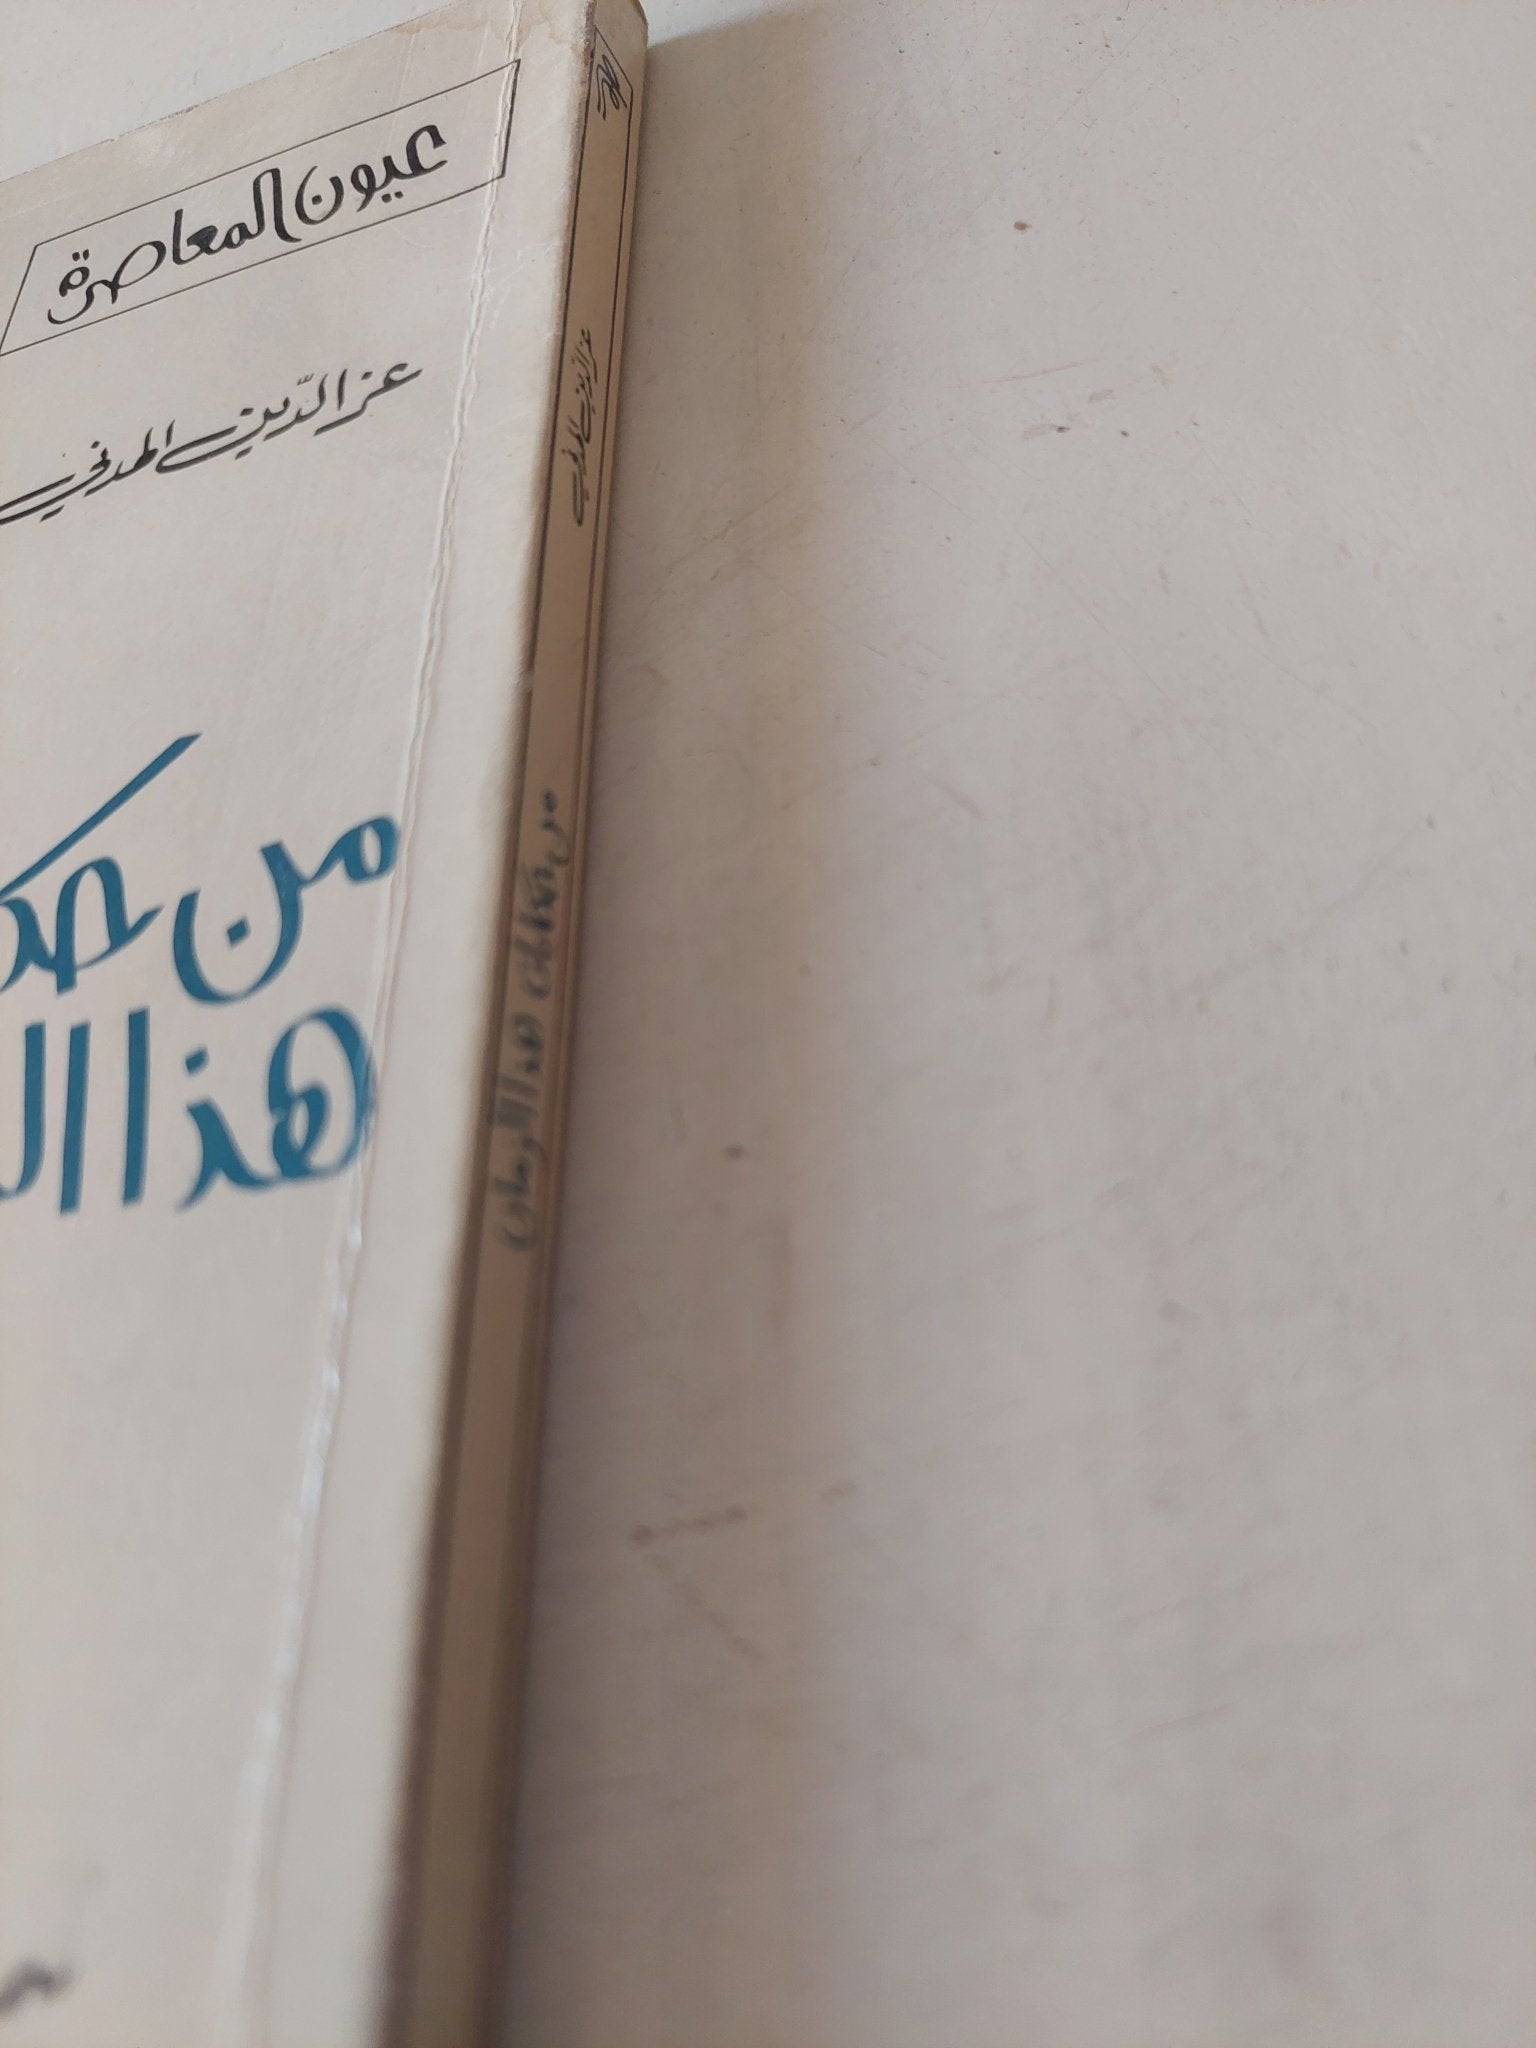 عيون المعاصرة
عز الدّين المدني
من حكـ
هذا الـ
عز الدين المدني
من حكايات هذا الزمان